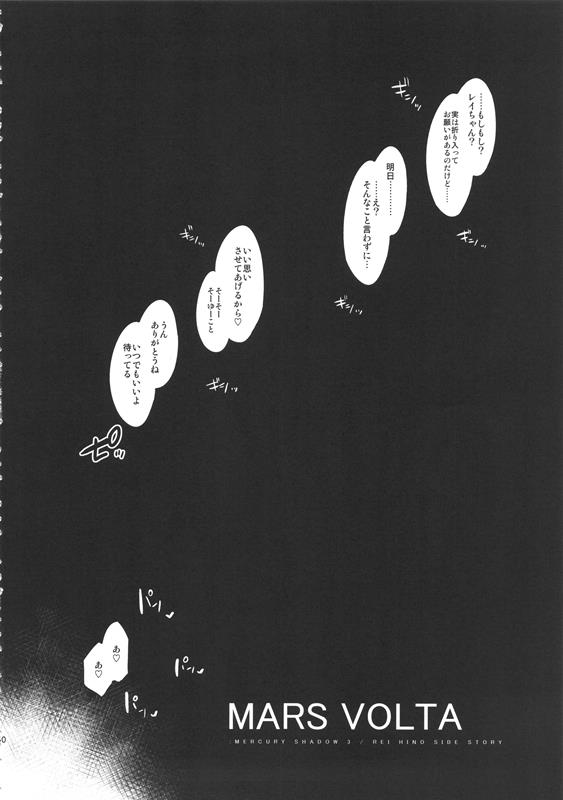 ……もしもし？
レイちゃん？
実は折り入って
お願いがあるのだけど……
ギシッ
ギシッ
明日………
……え？
そんなこと言わずに…
ギシッ
ギシッ
いい思い
させてあげるから♡
そーそー
そーゆーこと
ギシッ
うん
ありがとうね
いつでもいいよ
待ってる
ピッ
パンッ
あ♡
あ♡
パンッ
パンッ
MARS VOLTA
MERCURY SHADOW 3 / REI HINO SIDE STORY